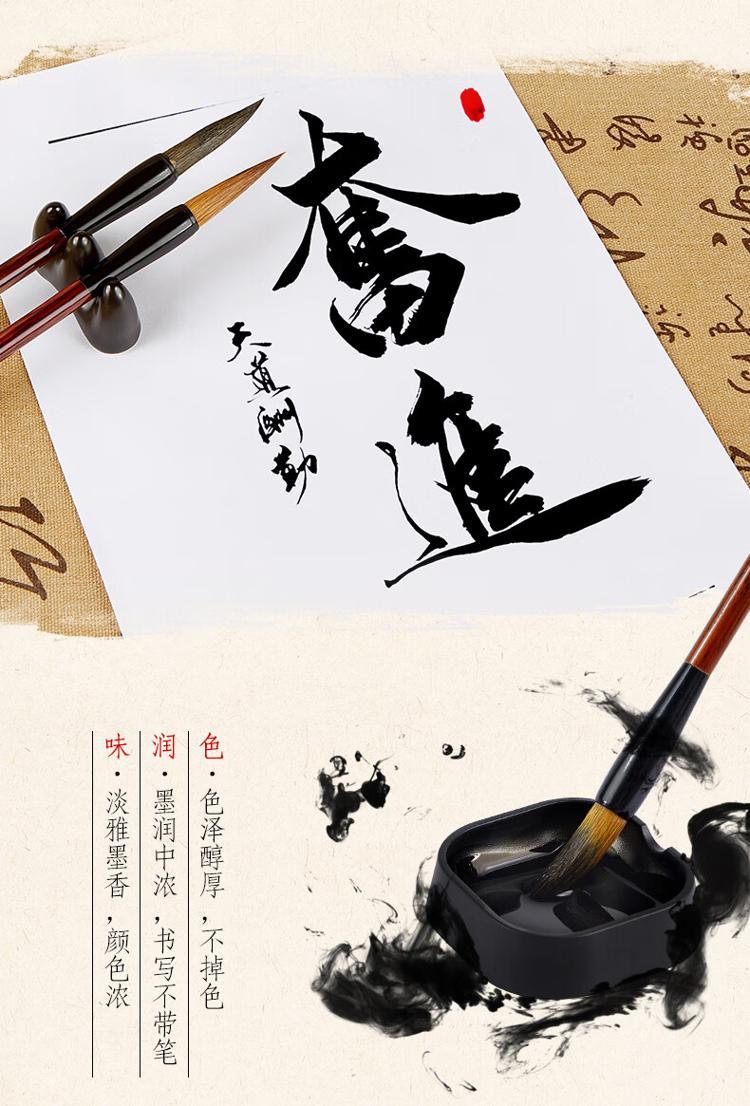 奮進
天道酬勤
色·色泽醇厚，不掉色
润·墨润中浓，书写不带笔
味·淡雅墨香，颜色浓